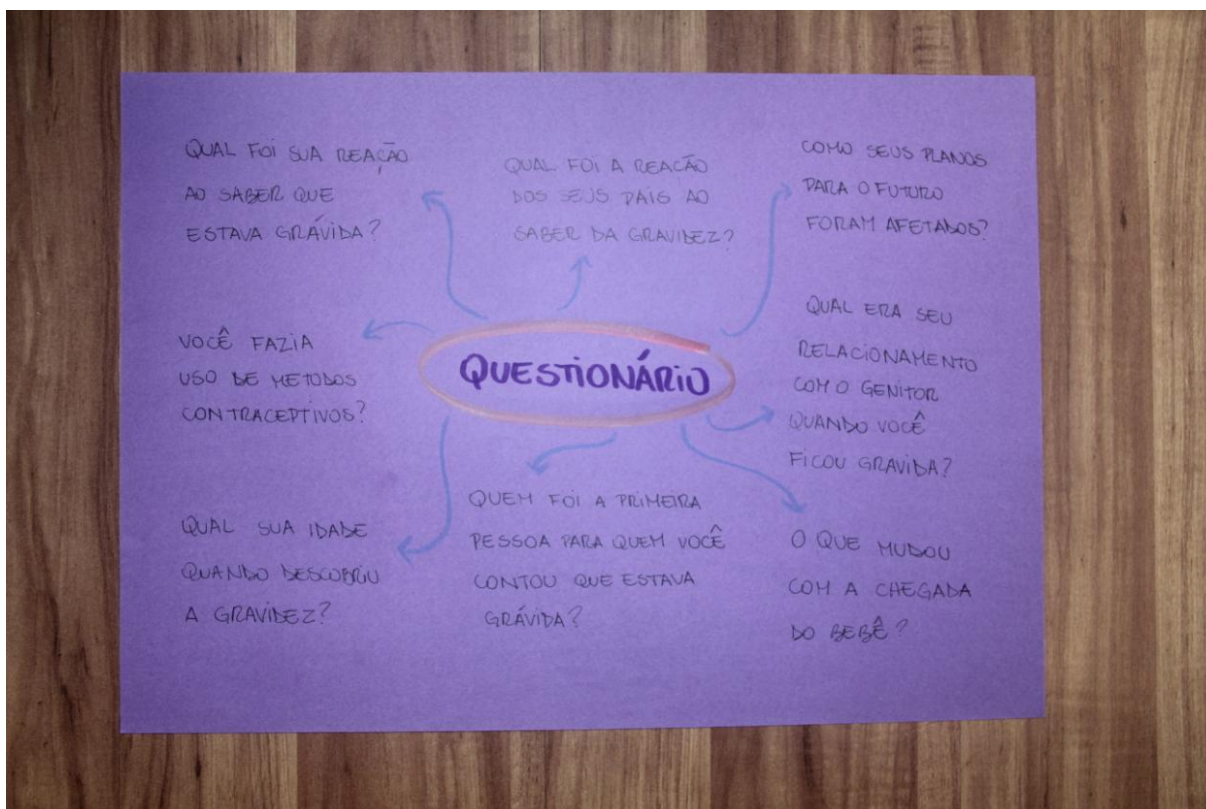 QUAL FOI SUA REAÇÃO
AO SABER QUE
ESTAVA GRÁVIDA?
QUAL FOI A REAÇÃO
DOS SEUS PAIS AO
SABER DA GRAVIDEZ?
COMO SEUS PLANOS
PARA O FUTURO
FORAM AFETADOS?
VOCÊ FAZIA
USO DE METODOS
CONTRACEPTIVOS?
QUESTIONÁRIO
QUAL ERA SEU
RELACIONAMENTO
COM O GENITOR
QUANDO VOCÊ
FICOU GRAVIDA?
QUAL SUA IDADE
QUANDO DESCOBRIU
A GRAVIDEZ?
QUEM FOI A PRIMEIRA
PESSOA PARA QUEM VOCÊ
CONTOU QUE ESTAVA
GRÁVIDA?
O QUE MUDOU
COM A CHEGADA
DO BEBÊ?